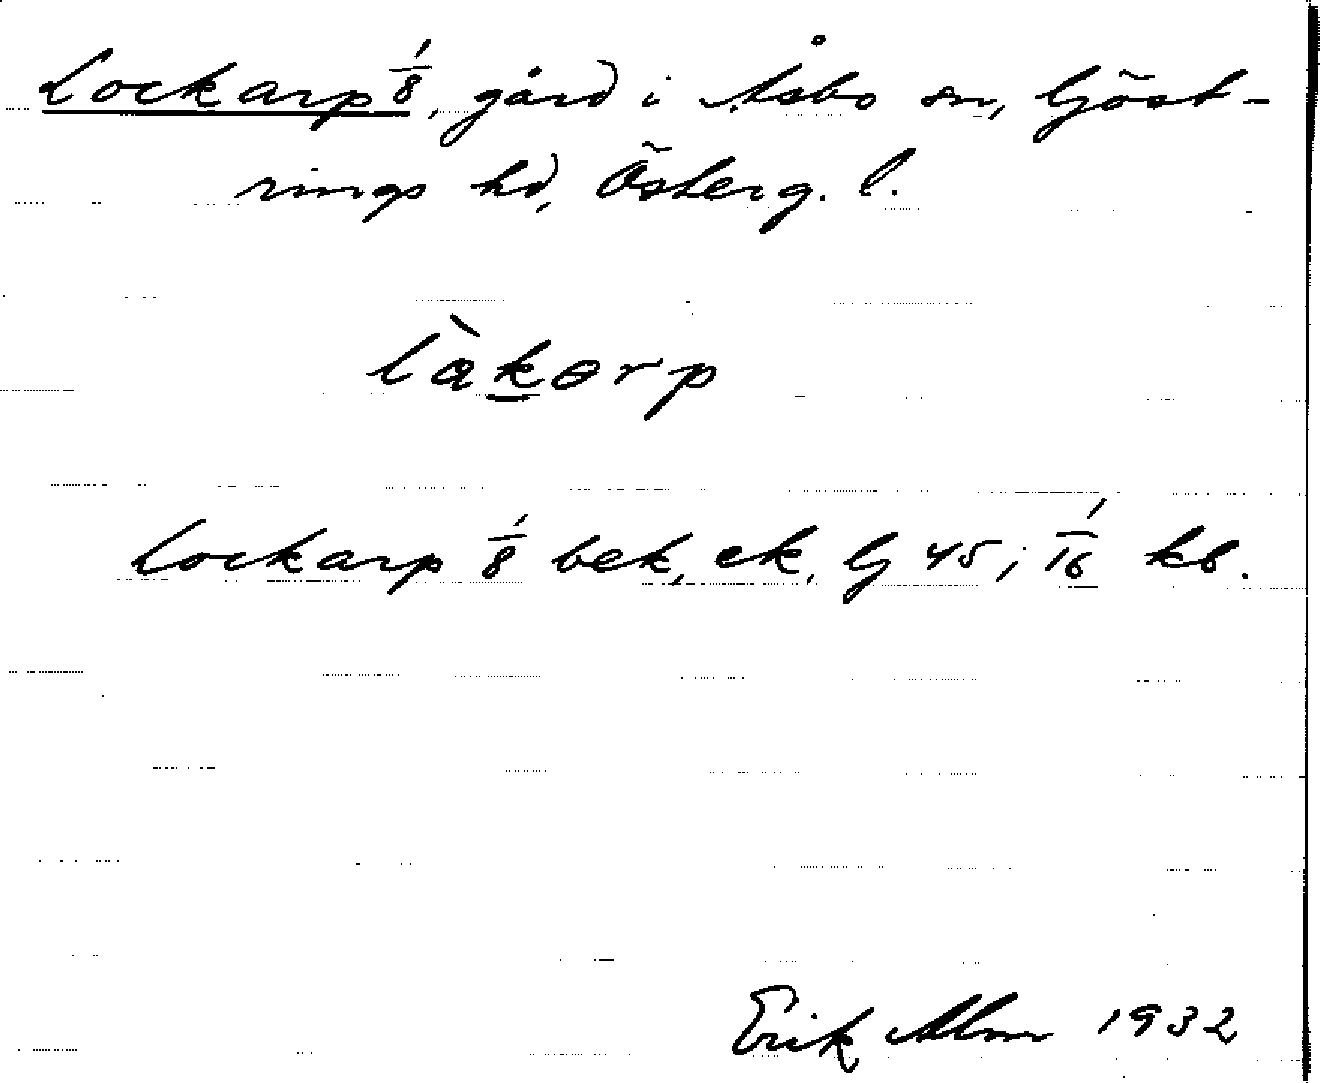 Lockarp 1/8, gård i Åsbo sn, Göst-
rings hd, Österg. l.
làkɵrp
Lockarp 1/8 bek, ek, lj 45; 1/16 kb.
Erik Alm 1932